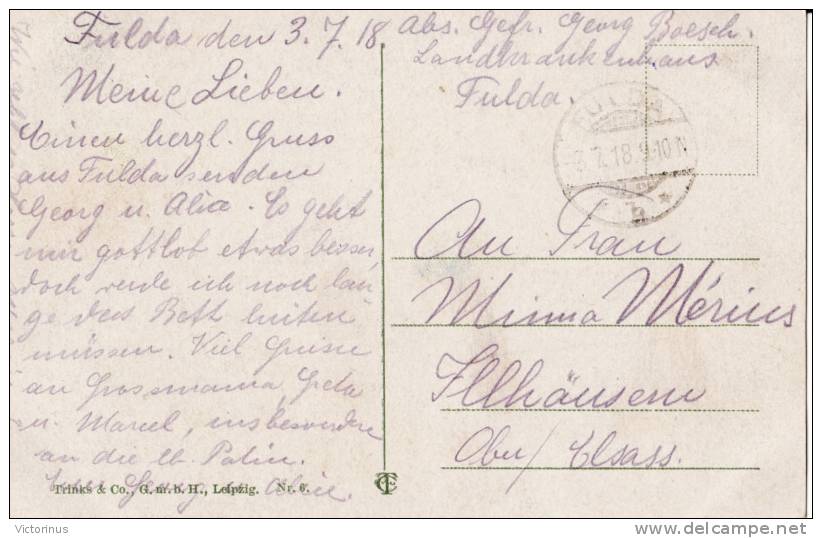 Fulda den 3.7.18
Meine Lieben.
Einen herzl. Gruss
aus Fulda senden
Georg u. Alice. Es geht
mir gottlob etwas besser,
doch werde ich noch lan-
ge das Bett hüten
müssen. Viel Grüsse
an Grossmama, Greta
u. Marcel, insbesondere
an die lb. Patin.
Euer Georg u. Alice.
Trinks & Co., G. m. b. H., Leipzig. Nr. 6.
Abs. Gefr. Georg Boesch.
Landkrankenhaus
Fulda.
FULDA
3.7.18.9-10N
b
An Frau
Minna Mérius
Illhäusern
Ober/Elsass.
Victorinus
delcampe.net